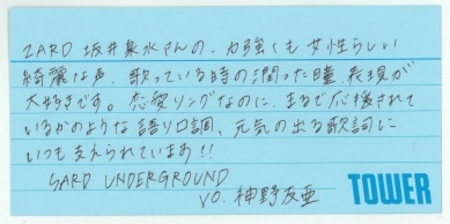 ZARD 坂井泉水さんの、力強くも女性らしい
綺麗な声、歌っている時の潤った瞳、表現が
大好きです。恋愛ソングなのに、まるで応援されて
いるかのような語り口調、元気の出る歌詞に
いつも支えられています!!
SARD UNDERGROUND
VO. 神野友亜
TOWER